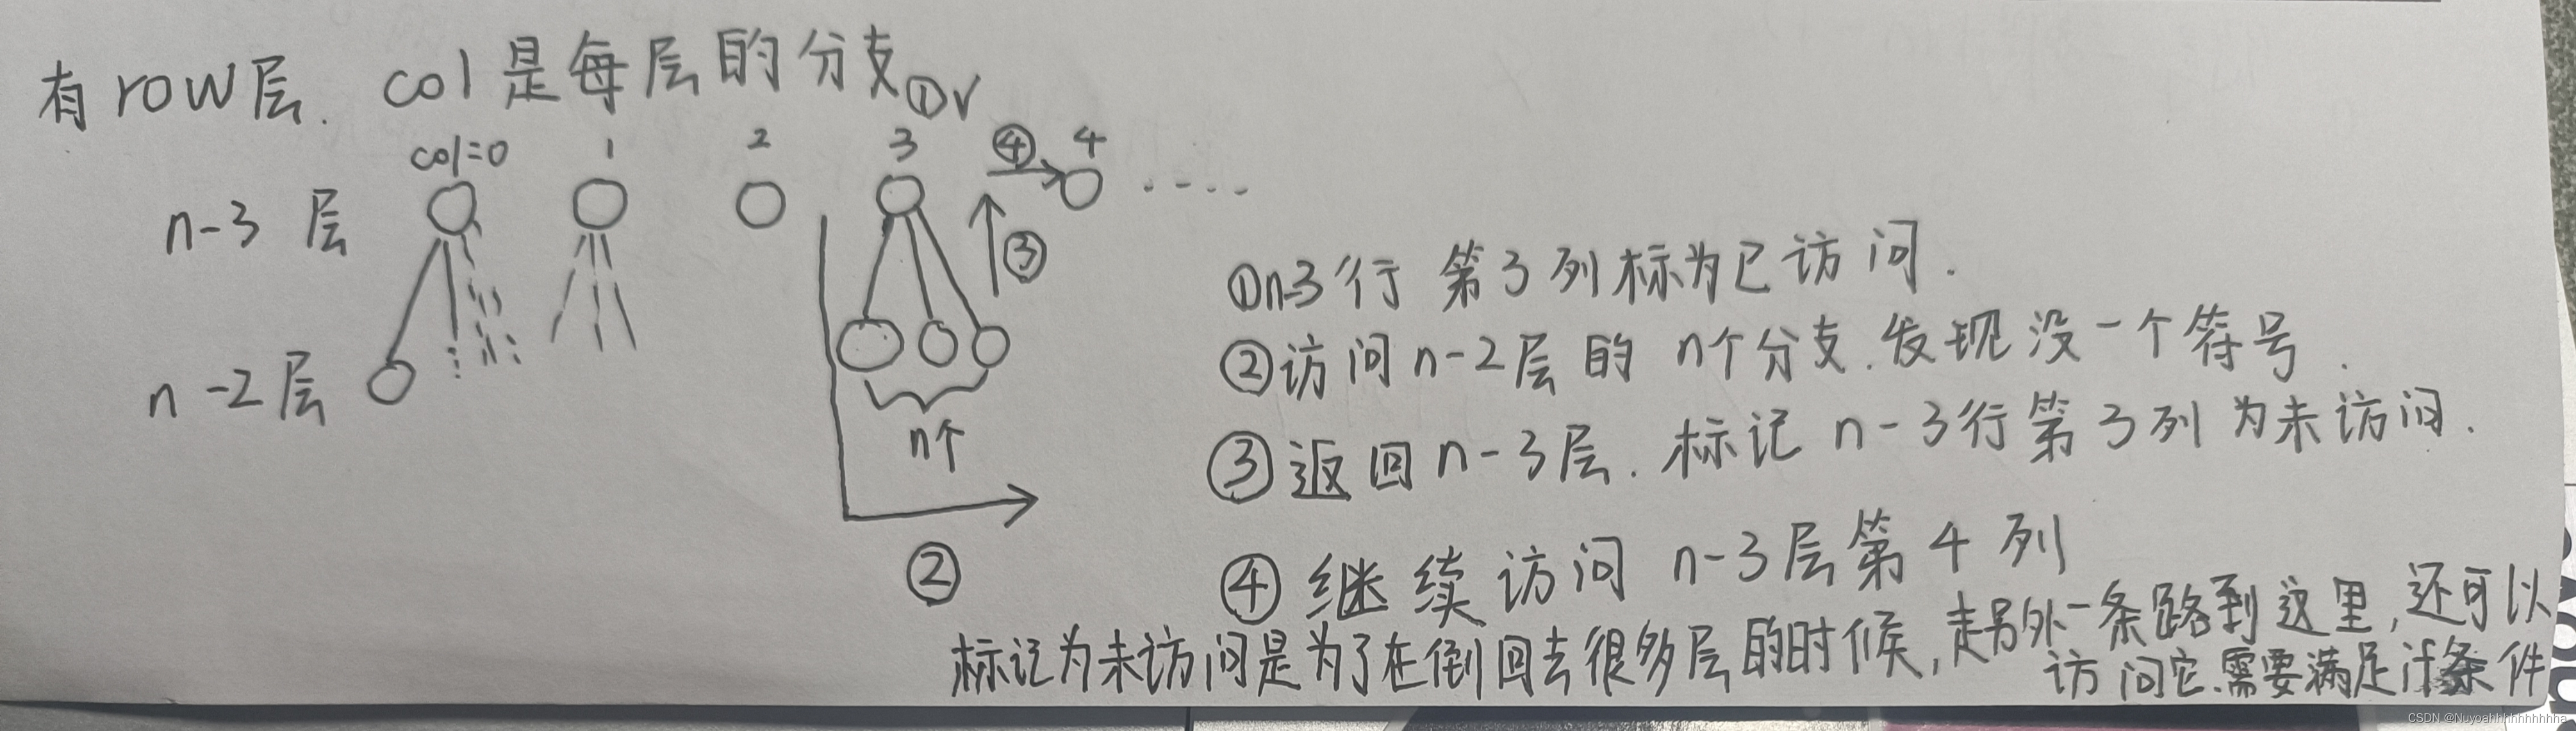 有row层. col是每层的分支
①√
col=0 1 2 3 ④ 4
n-3 层
③
n-2层
n个
②
①n-3行 第3列标为已访问.
②访问n-2层的 n个分支.发现没一个符号.
③返回n-3层. 标记n-3行第3列为未访问.
④继续访问 n-3层第4列
标记为未访问是为了在倒回去很多层的时候,走另外一条路到这里,还可以
访问它.需要满足if条件
CSDN @Nuyoahhhhhhhhhha